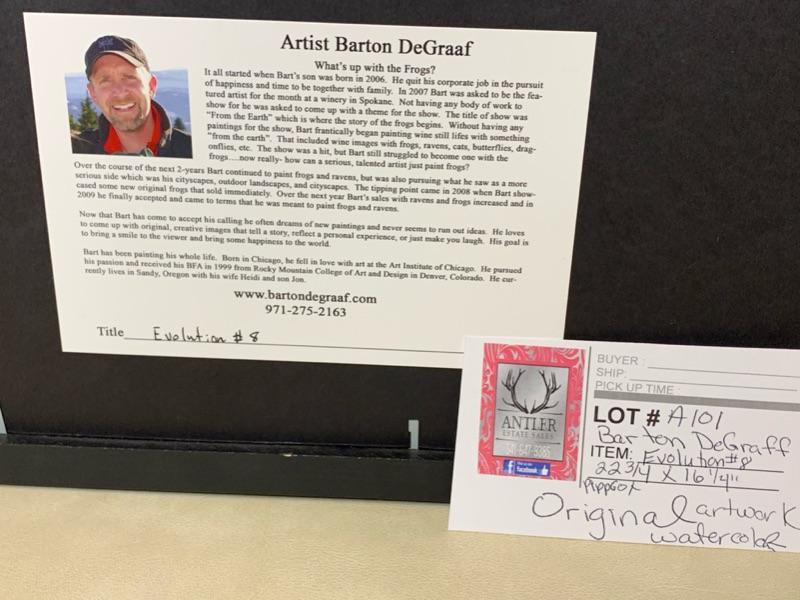 Artist Barton DeGraaf
What's up with the Frogs?
It all started when Bart's son was born in 2006. He quit his corporate job in the pursuit
of happiness and time to be together with family. In 2007 Bart was asked to be the fea-
tured artist for the month at a winery in Spokane. Not having any body of work to
show for he was asked to come up with a theme for the show. The title of show was
"From the Earth" which is where the story of the frogs begins. Without having any
paintings for the show, Bart frantically began painting wine still lifes with something
"from the earth". That included wine images with frogs, ravens, cats, butterflies, drag-
onflies, etc. The show was a hit, but Bart still struggled to become one with the
frogs....now really- how can a serious, talented artist just paint frogs?
Over the course of the next 2-years Bart continued to paint frogs and ravens, but was also pursuing what he saw as a more
serious side which was his cityscapes, outdoor landscapes, and cityscapes. The tipping point came in 2008 when Bart show-
cased some new original frogs that sold immediately. Over the next year Bart's sales with ravens and frogs increased and in
2009 he finally accepted and came to terms that he was meant to paint frogs and ravens.
Now that Bart has come to accept his calling he often dreams of new paintings and never seems to run out ideas. He loves
to come up with original, creative images that tell a story, reflect a personal experience, or just make you laugh. His goal is
to bring a smile to the viewer and bring some happiness to the world.
Bart has been painting his whole life. Born in Chicago, he fell in love with art at the Art Institute of Chicago. He pursued
his passion and received his BFA in 1999 from Rocky Mountain College of Art and Design in Denver, Colorado. He cur-
rently lives in Sandy, Oregon with his wife Heidi and son Jon.
www.bartondegraaf.com
971-275-2163
Title Evolution #8
ANTLER
ESTATE SALES
facebook
BUYER:
SHIP:
PICK UP TIME
LOT # A101
Barton DeGraff
ITEM: Evolution #8
22 3/4 X 16 1/4"
Original artwork
watercolor